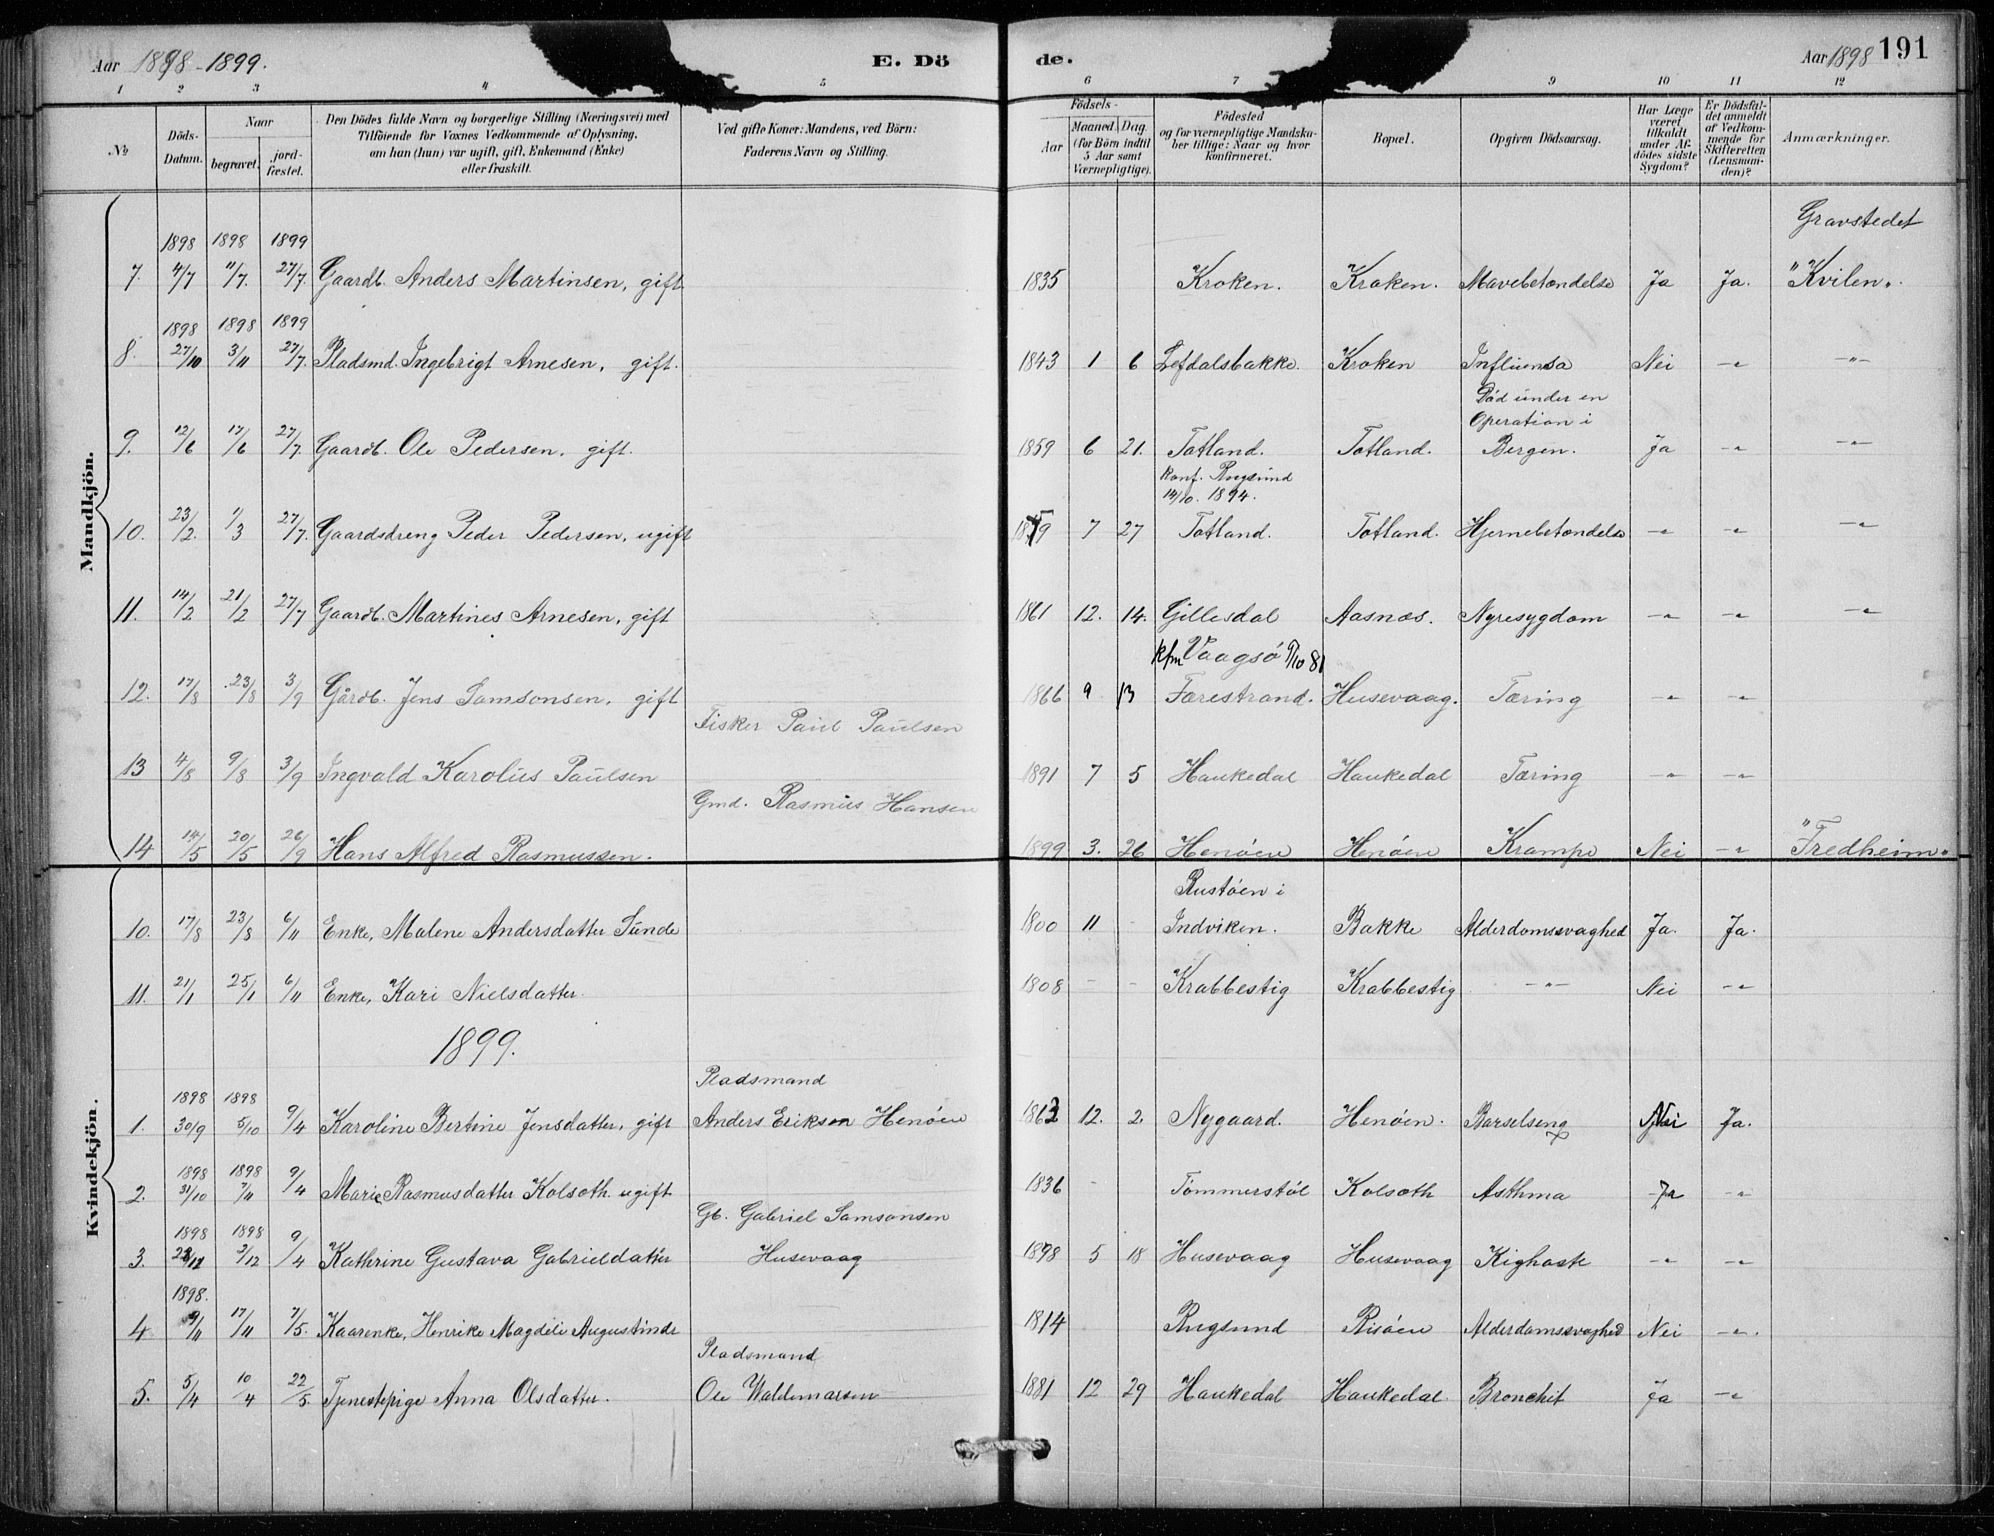 Aar 1898-1899. E. Dö de. Aar 1898 191
1 2 3 4 5 6 7 9 10 11 12
№ Döds-Datum. Naar begravet. jord-fæstet. Den Dödes fulde Navn og borgerlige Stilling (Næringsvei) med Tilföiende for Voxnes Vedkommende af Oplysning, om han (hun) var ugift, gift, Enkemand (Enke) eller fraskilt. Ved gifte Koner: Mandens, ved Börn: Faderens Navn og Stilling. Födsels- Aar Maaned. Dag. (for Börn indtil 5 Aar samt Værnepligtige). Födested og for værnepligtige Mandskaber tillige: Naar og hvor konfirmeret. Bopæl. Opgiven Dödsaarsag. Har Læge været tilkaldt under Afdödes sidste Sygdom? Er Dödsfaldet anmeldt af Vedkommende for Skifteretten (Lensmanden)? Anmærkninger.
Mandkjön.
Gravstedet
1898 1898 1899
7. 4/7 11/7. 27/7. Gaardb. Anders Martinsen, gift 1835 Kroken. Kroken. Mavebetændelse Ja Ja. "Kvilen".
1898 1898 1899
8. 27/10 3/11 27/7. Pladsmd. Ingebrigt Arnesen, gift. 1843 1 6 Lefdalsbakke. Kroken Influensa Nei -"- -"-
Död under en
Operation i
9. 12/6 17/6 27/7. Gaardb. Ole Pedersen, gift. 1859 6 21. Totland. Totland. Bergen. Ja -"- -"-
konf. Rugsund
14/10. 1894.
10. 23/2. 1/3 27/7. Gaardsdreng Peder Pedersen, ugift 1879 7 27 Totland. Totland. Hjernebetændelse -"- -"- -"-
11. 14/2 21/2 27/7 Gaardb. Martines Arnesen, gift 1861 12. 14. Gillesdal Aasnæs. Nyresygdom -"- -"- -"-
kfm Vaagsö 9/10 81
12. 17/8 23/8 3/9 Gårdb. Jens Samsonsen, gift 1866 9 13 Færestrand. Husevaag. Tæring -"- -"-
Fisker Paul Paulsen
13 4/8 9/8 3/9 Ingvald Karolius Paulsen 1891 7 5 Haukedal Haukedal Tæring -"- -"-
Gmd. Rasmus Hansen
14 14/5 20/5 26/9 Hans Alfred Rasmussen. 1899 3. 26 Henöen Henöen Krampe Nei -"- "Fredheim"
Kvindekjön.
Rustöen i
10. 17/8 23/8 6/11 Enke, Malene Andersdatter Sunde 1800 11 - Indviken. Bakke Alderdomssvaghed Ja. Ja.
11. 21/1 25/1 6/11 Enke, Kari Nielsdatter. 1808 - - Krabbestig Krabbestig -"- Nei -"-
1899.
Pladsmand
1898 1898
1. 30/9 5/10 9/4 Karoline Bertine Jensdatter, gift Anders Eriksen Henöen 1863 12. 2. Nygaard. Henöen. Barselseng Nei Ja.
1898 1898
2. 31/10 7/11 9/4 Marie Rasmusdatter Kolsoth. ugift 1836 - Tömmerstöl Kolsoth Asthma Ja -"-
Gb. Gabriel Samsonsen
1898 1898
3. 7/12 9/4 Kathrine Gustava Gabrieldatter Husevaag 1898 5 18 Husevaag Husevaag Kighoste -"- -"-
1898.
4. 9/11 17/11 7/5. Kaarenke, Henrike Magdeli Augustindr 1814 Rugsund Risöen Alderdomssvaghed Nei -"-.
Pladsmand
5. 5/4 10/4 22/5. Tjenestepige Anna Olsdatter. Ole Waldemarsen 1881 12 29 Haukedal Haukedal Bronchit Ja -"-